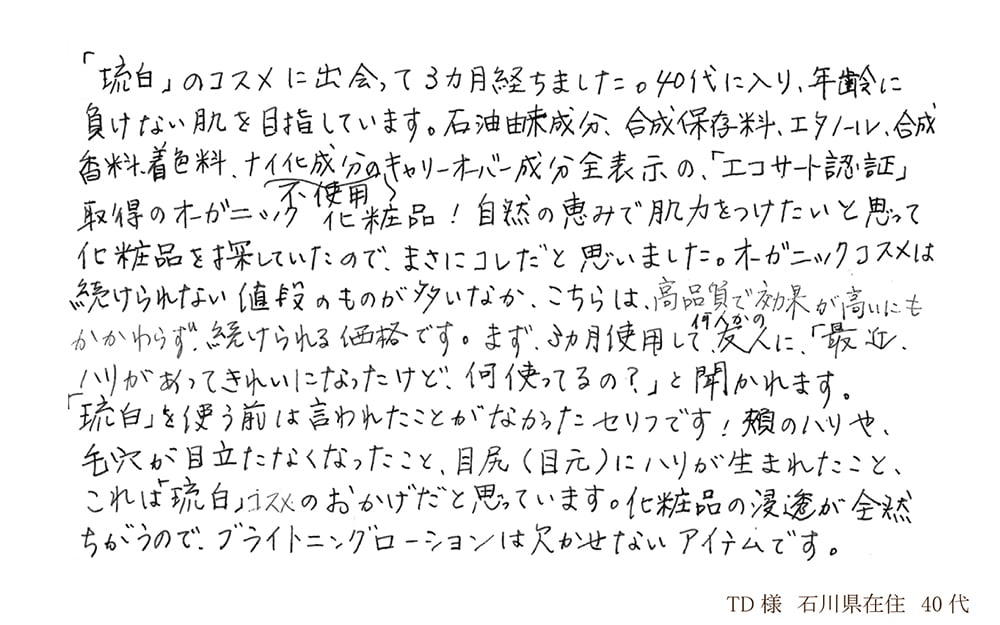 「琉白」のコスメに出会って3カ月経ちました。40代に入り、年齢に
負けない肌を目指しています。石油由来成分、合成保存料、エタノール、合成
香料、着色料、ナノ化成分のキャリーオーバー成分全表示の、「エコサート認証」
不使用
取得のオーガニック 化粧品!自然の恵みで肌力をつけたいと思って
化粧品を探していたので、まさにコレだと思いました。オーガニックコスメは
続けられない値段のものが多いなか、こちらは、高品質で効果が高いにも
かかわらず、続けられる価格です。まず、3カ月使用して、何人かの友人に、「最近、
ハリがあってきれいになったけど、何使ってるの?」と聞かれます。
「琉白」を使う前は言われたことがなかったセリフです!頬のハリや、
毛穴が目立たなくなったこと、目尻(目元)にハリが生まれたこと、
これは「琉白」コスメのおかげだと思っています。化粧品の浸透が全然
ちがうので、ブライトニングローションは欠かせないアイテムです。
TD様 石川県在住 40代